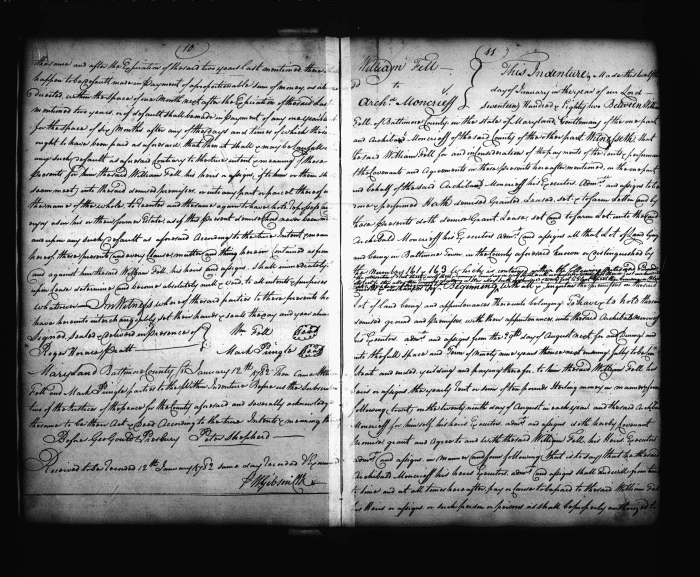 10
the same and after the Expiration of the said two years last mentioned there shall
happen to be default made in payment of a proportionable sum of money, as above
directed within the space of one Month next after the Expiration of the said last
mentioned two years, or if default shall be made in payment of any one years Rent
for the space of six Months after any of the days and times of which the same
ought to have been paid as aforesaid that then it shall & may be lawful
any such default as aforesaid contrary to the true intent & meaning of these
presents for him the said William Fell his heirs or assigns, if to him or them it shall
seem meet, into the said demised premises, or into any part or parcel thereof in
the name of the whole to reenter and the same again to have hold repossess &
enjoy as in his or their former Estate as if this present demise had never been made
and upon any such default as aforesaid According to the true Intent & mean
ing of these presents and every clause matter and thing herein contained as for
and against him the said William Fell his heirs and assigns shall immediately
upon case determine and become absolutely null & void to all intents & purposes
whatsoever In Witness whereof the said parties to these presents he
have hereunto interchangeably set their hands & seals the day and year above
Signed, sealed & delivered in presence of Wm Fell
Roger Horace Pratt Mark Pringle
Maryland Baltimore County Sc January 12th 1782 Then Came Wm
Fell and Mark Pringle parties to the Within Indenture Before us the Subscri
bers of the Justices of the peace for the County aforesaid and severally acknowledg
the same to be their Act & Deed According to the true Intents & meaning th
Before Geo Gould Presbury Peter Shepherd
Received to be Recorded 12th January 1782 same day Recorded & Examd
P Wm Gibson Clk
11
William Fell
to
Archd Moncrieff
This Indenture, Made this twelfth
day of January in the year of our Lord
seventeen Hundred & Eighty two Between William
Fell of Baltimore County in the state of Maryland Gentleman of the one part
and Archibald Moncrieff of the said County of the other part Witnesseth that
he said William Fell for and in consideration of the payments of the rents & performance
the Covenants and Agreements in these presents hereafter mentioned, on the one part
and behalf of the said Archibald Moncrieff his Executors Admrs and assigns to be
one & performed Hath demised Granted Leased set & to farm Letten and by
these presents doth demise Grant Lease set and to farm Let unto the said
Archibald Moncrieff his Executors admrs and assigns all that Lot of land lying
and being in Baltimore Town in the County aforesaid known or distinguished by
the Numbers 141, 143
Lot of land being and appurtenances thereunto belonging To have & to hold the said
demised ground and premises with their appurtenances unto the said Archibald Moncrieff
his Executors admrs and assigns from the 29th day of August next for and During and
unto the full space and Term of Ninety nine years thence next ensuing fully to be Com
pleat and ended yielding and paying therefor to him the said William Fell his
heirs or assigns the yearly Rent or sum of ten pounds Sterling money in manner & form
following, to wit, on the twenty ninth day of August in each year and the said Archibald
Moncrieff for himself his heirs Executors, admrs and assigns doth hereby covenant
promise, grant and agree to and with the said William Fell, his heirs Executors
admrs and assigns in Manner and form following That is to say that he the said
Archibald Moncrieff his heirs Executors admrs and assigns shall and will from time
to time and at all times hereafter pay or cause to be paid to the said William Fell
his Heirs or assigns or such person or persons as shall be properly authorized to